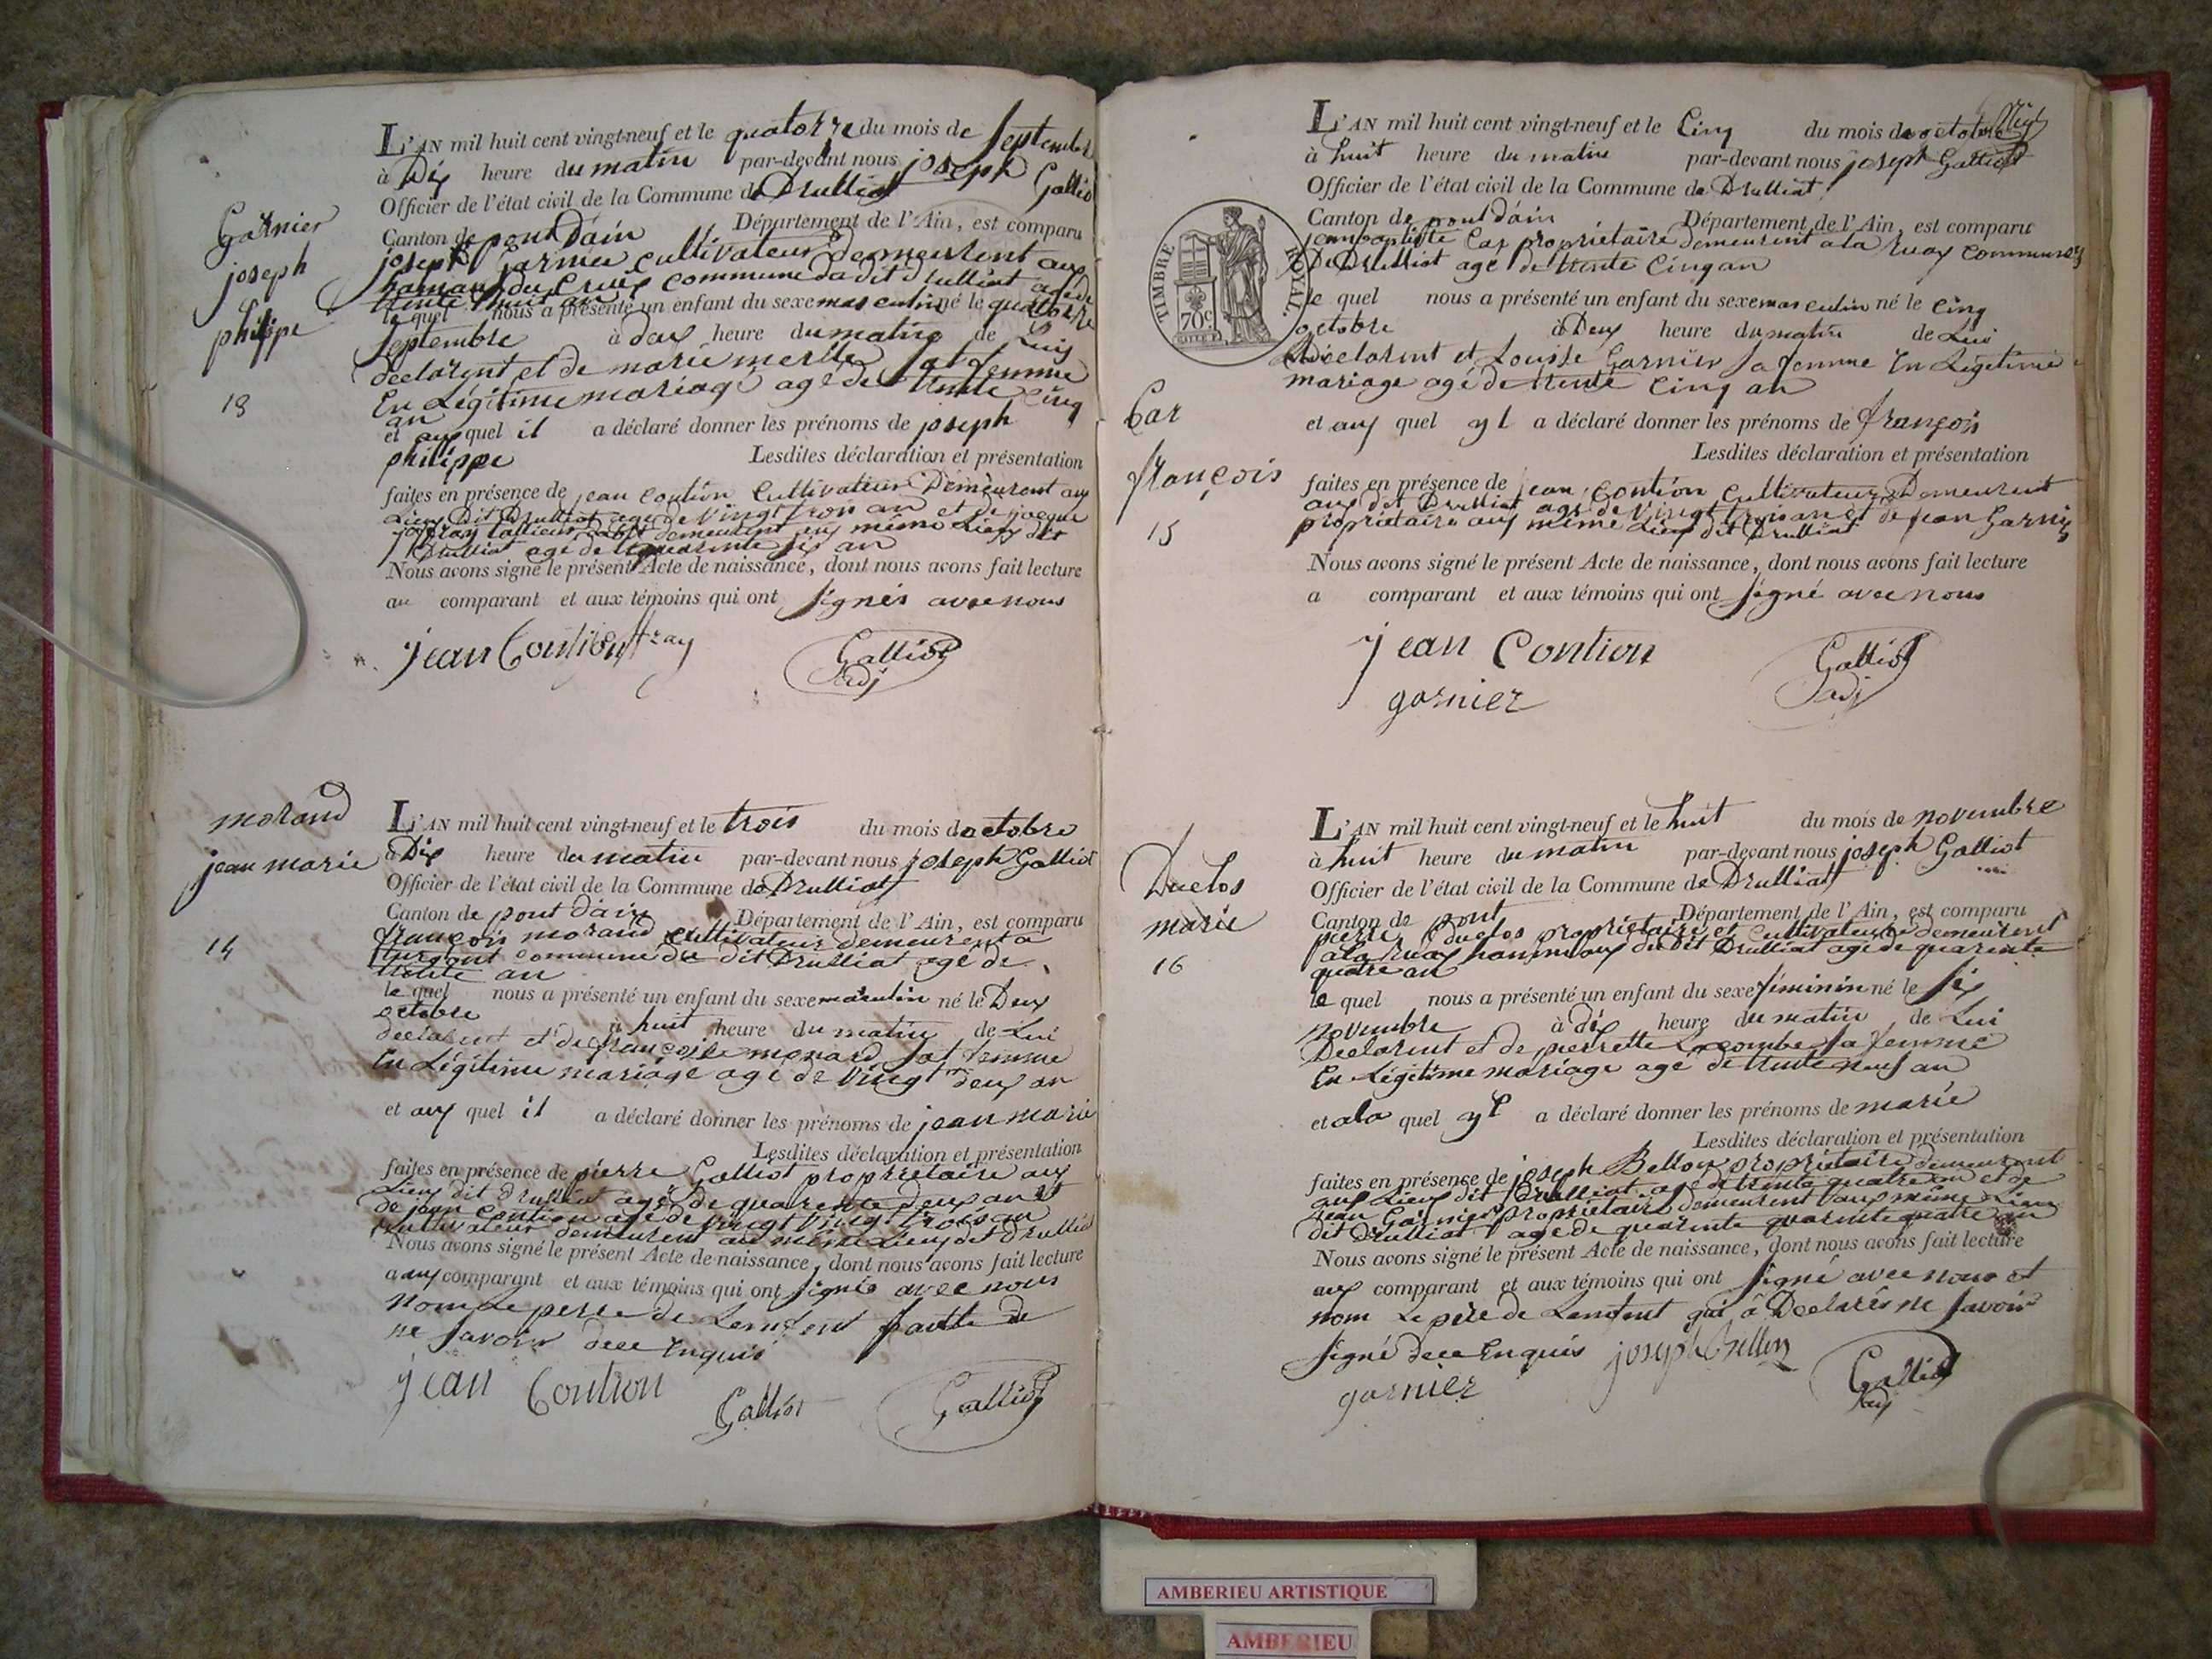 Garnier
joseph
philippe
13
L'AN mil huit cent vingt-neuf et le quatorze du mois de septembre
à Dix heure du matin par-devant nous joseph Galliot
Officier de l'état civil de la Commune de Drulliat
Canton de pont Dain Département de l'Ain, est comparu
joseph Garnier cultivateur demeurent aux
hamaux du Cruix commune du dit drulliat agé de
trente huit an
le quel nous a présenté un enfant du sexe masculin né le quatorze
septembre à deux heure du matin de Luis
declarent et de marie merlle sat femme
En Légitime mariage agé de trente cinq
an
et aux quel il a déclaré donner les prénoms de joseph
philippe Lesdites déclaration et présentation
faites en présence de jean Contion Cultivateur Demeurent aux
Lieux Dit Drulliat agé de vingt trois an et de jacque
demeurent aux même Lieux dit
Drulliat agé de quarente six an
Nous avons signé le présent Acte de naissance, dont nous avons fait lecture
au comparant et aux témoins qui ont signés avec nous
jean Contion fray Galliot
adj
morand
jean marie
14
L'AN mil huit cent vingt-neuf et le trois du mois d octobre
à Dix heure du matin par-devant nous joseph Galliot
Officier de l'état civil de la Commune de Drulliat
Canton de pont d'ain Département de l'Ain, est comparu
françois morand cultivateur demeurent a
turgont commune du dit Drulliat agé de
trente an
le quel nous a présenté un enfant du sexe masculin né le Deux
octobre à huit heure du matin de Lui
declarent et de françoise monard sat femme
En Légitime mariage agé de vingt deux an
et aux quel il a déclaré donner les prénoms de jean marie
Lesdites déclaration et présentation
faites en présence de pierre Galliot propriétaire aux
Lieux dit drulliat agé de quarente deux an et
de jean Contion agé de vingt vingt trois an
cultivateur demeurent au même Lieux dit drulliat
Nous avons signé le présent Acte de naissance, dont nous avons fait lecture
a aux comparant et aux témoins qui ont signés avec nous
nom Le pere de Lenfent fautte de
ne savoir dece Enquis
jean Contion Galliot Galliot
L'AN mil huit cent vingt-neuf et le Cinq du mois de octobre
à huit heure du matin par-devant nous joseph Galliot
Officier de l'état civil de la Commune de Drulliat
Canton de pont dain Département de l'Ain, est comparu
jean baptiste Car propriétaire demeurent a la ruax commune
De Drulliat agé de trente Cinq an
TIMBRE ROYAL.
70c
le quel nous a présenté un enfant du sexe masculin né le cinq
octobre à Deux heure du matin de Lui
declarent et Louise Garnier sa femme En Légitime
mariage agé de trente cinq an
Car
françois
15
et aux quel yl a déclaré donner les prénoms de françois
Lesdites déclaration et présentation
faites en présence de jean Contion Cultivateur Demeurent
aux dit Drulliat agé de vingt trois an et de jean Garnier
propriétaire aux même Lieux dit Drulliat
Nous avons signé le présent Acte de naissance, dont nous avons fait lecture
a comparant et aux témoins qui ont signé avec nous
jean Contion Galliot
garnier adj
Duclos
marie
16
L'AN mil huit cent vingt-neuf et le huit du mois de novembre
à huit heure du matin par-devant nous joseph Galliot
Officier de l'état civil de la Commune de Drulliat
Canton de pont Département de l'Ain, est comparu
pierre Duclos propriétaire et cultivateur demeurent
a la ruax hammaux du Dit Drulliat agé de quarente
quatre an
le quel nous a présenté un enfant du sexe féminin né le six
novembre à dix heure du matin de Lui
Declarent et de pierrette Lacombe sa femme
En Légitime mariage agé de trente neuf an
et a la quel yl a déclaré donner les prénoms de marie
Lesdites déclaration et présentation
faites en présence de joseph Bellon propriétaire demeurent
aux Lieux dit Drulliat agé de trente quatre an et de
jean Garnier propriétaire demeurent aux même Lieux
dit Drulliat agé de quarente quarente quatre an
Nous avons signé le présent Acte de naissance, dont nous avons fait lecture
aux comparant et aux témoins qui ont signé avec nous et
nom Le père de Lenfent qui a Declarés ne savoir
signé dece Enquis joseph Bellon
garnier Galliot
adj
AMBERIEU ARTISTIQUE
AMBERIEU